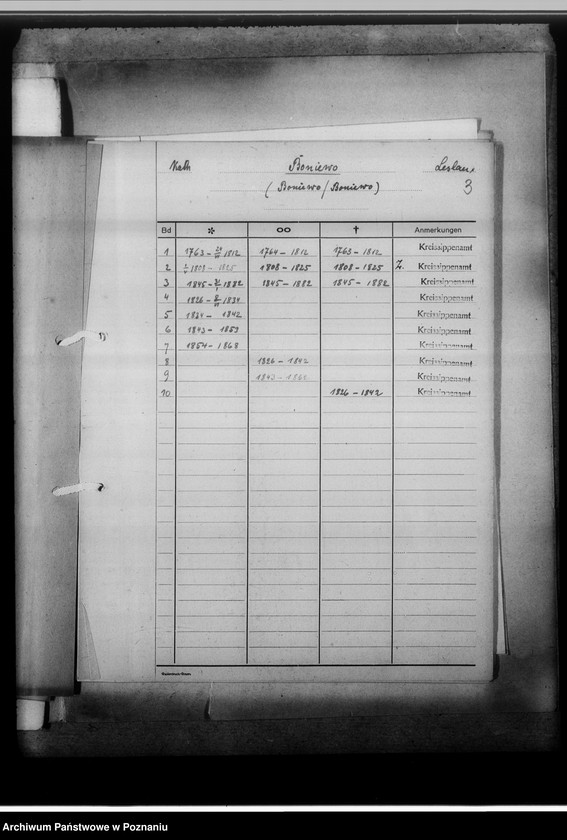 Kath Boniewo Leslau
(Boniewo/Boniewo) 3
Bd * ∞ † Anmerkungen
1 1763 – 1812 1764 – 1812 1763 – 1812 Kreissippenamt
2 1808 – 1825 1808 – 1825 1808 – 1825 Z. Kreissippenamt
3 1845 – 1882 1845 – 1882 1845 – 1882 Kreissippenamt
4 1826 – 1834 Kreissippenamt
5 1834 – 1842 Kreissippenamt
6 1843 – 1853 Kreissippenamt
7 1854 – 1868 Kreissippenamt
8 1826 – 1842 Kreissippenamt
9 Kreissippenamt
10 1826 – 1842 Kreissippenamt
Archiwum Państwowe w Poznaniu